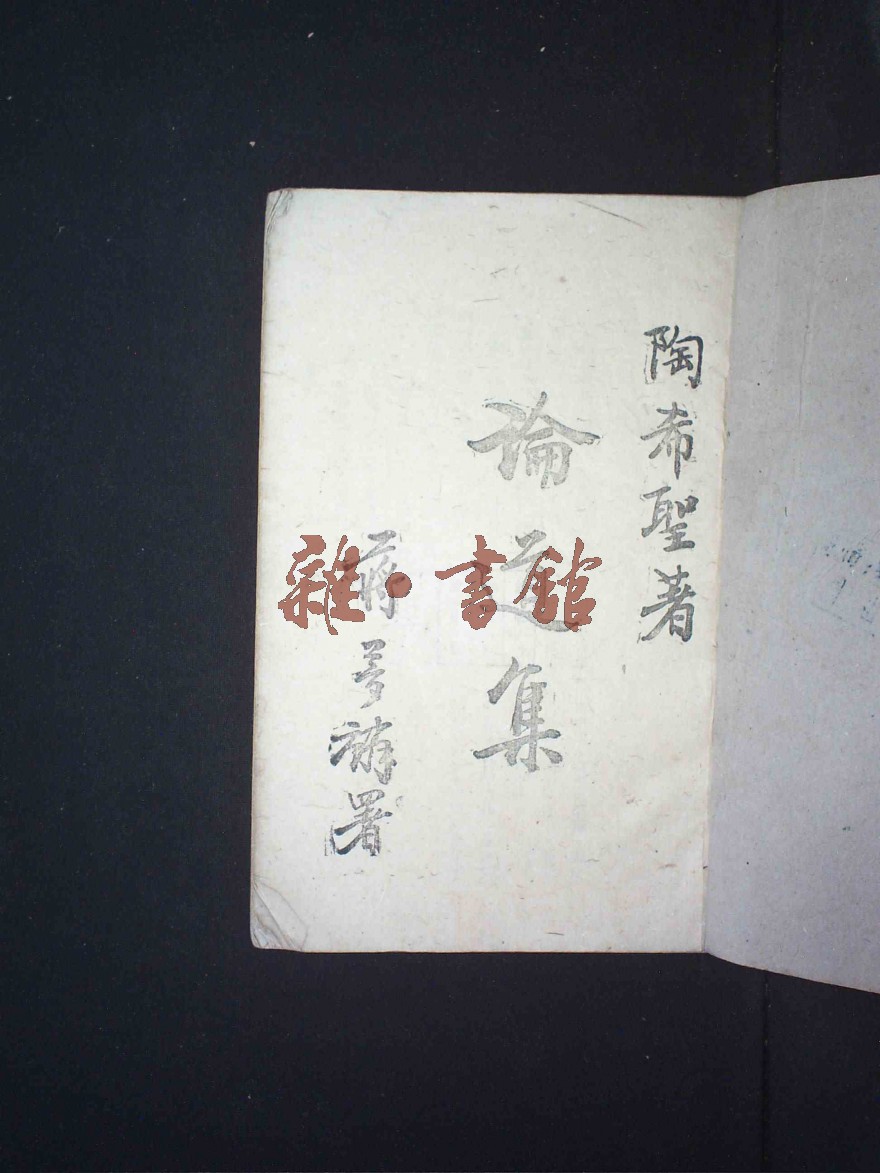 陶希聖著
論道集
蔣夢麟署
雜·書館